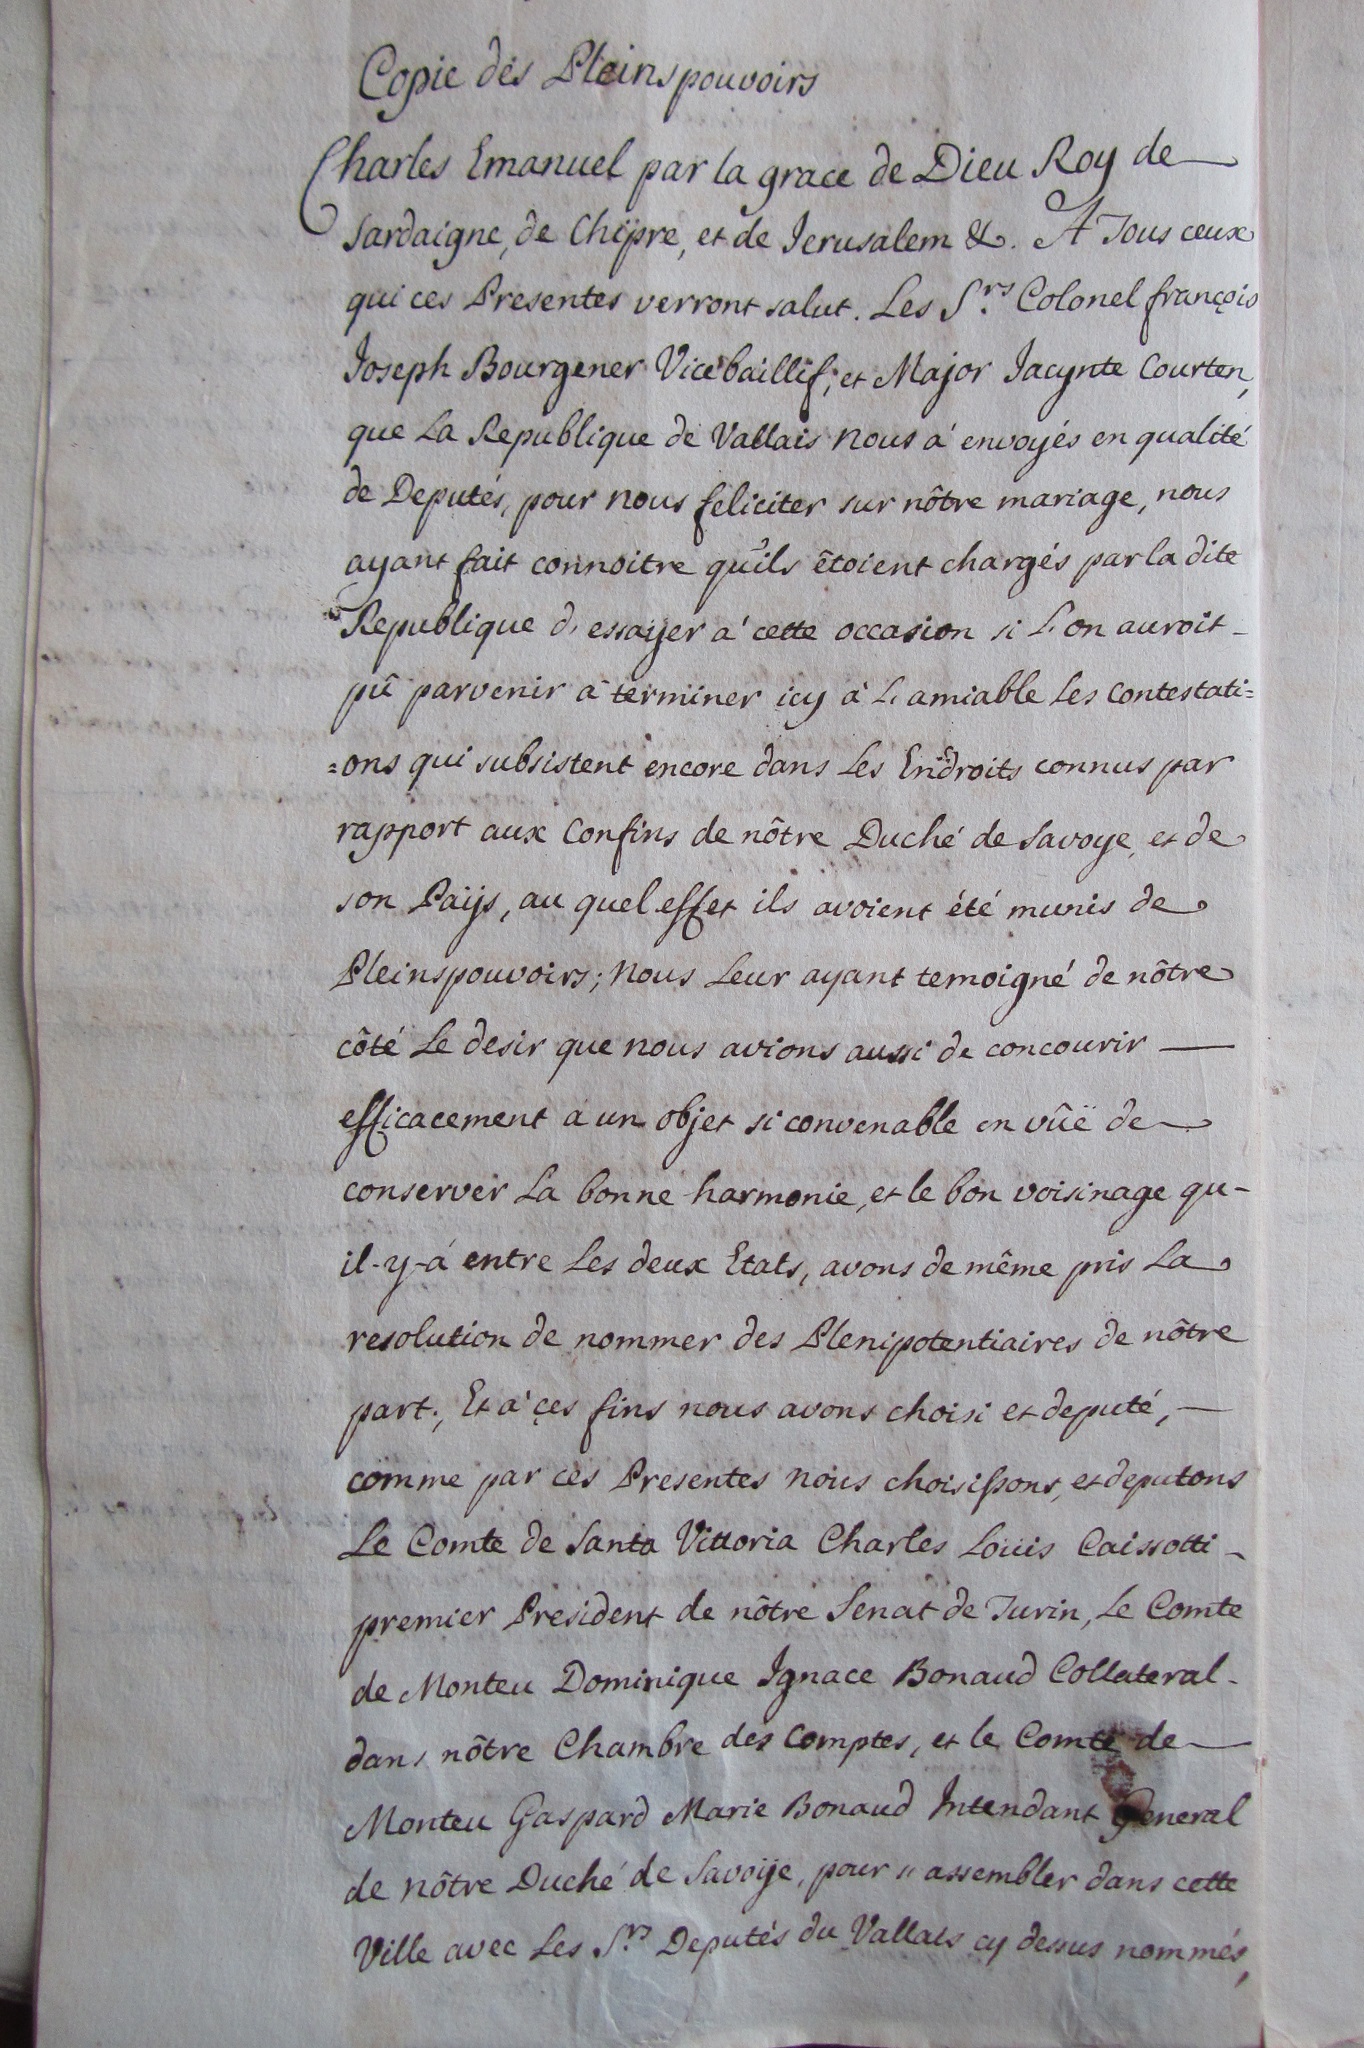 Copie des Pleinspouvoirs
Charles Emanuel par la grace de Dieu Roy de
Sardaigne, de Chÿpre, et de Jerusalem &. A Tous ceux
qui ces Presentes verront salut. Les S.rs Colonel françois
Joseph Bourgener Vicebaillif, et Major Jacynte Courten,
que La Republique de Vallais nous á envoyés en qualité
de Deputés, pour nous feliciter sur nôtre mariage, nous
ayant fait connoitre qu'ils êtoient chargés par la dite
Republique d'essayer a' cette occasion si L'on auroit
pû parvenir à terminer icy à L'amiable Les Contestati=
=ons qui subsistent encore dans Les Endroits connus par
rapport aux Confins de nôtre Duché de Savoye, et de
son Païs, au quel effet ils avoient été munis de
Pleinspouvoirs; nous Leur ayant temoigné de nôtre
côté Le desir que nous avions aussi de concourir
efficacement a un objet si convenable en vûë de
conserver La bonne harmonie, et le bon voisinage qu-
il-y-á entre Les deux Etats, avons de même pris La
resolution de nommer des Plenipotentiaires de nôtre
part., Et a' ces fins nous avons choisi et deputé,
comme par ces Presentes nous choisissons, et deputons
Le Comte de Santa Vittoria Charles Loüis Caissotti
premier President de nôtre Senat de Turin, Le Comte
de Monteu Dominique Ignace Bonaud Collateral
dans nôtre Chambre des Comptes, et le Comte de
Monteu Gaspard Marie Bonaud Intendant General
de nôtre Duché de Savoÿe, pour s'assembler dans cette
Ville avec Les S.rs Deputés du Vallais cy dessus nommés,